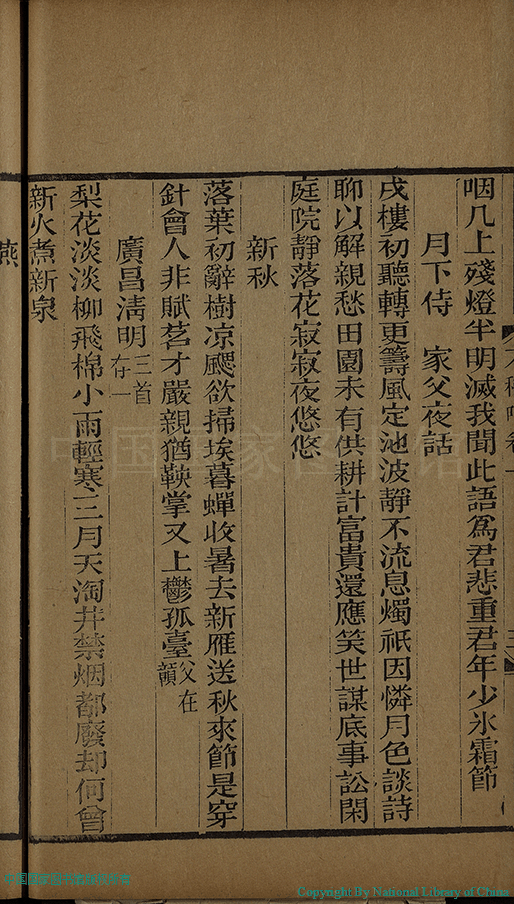 咽几上殘燈半明滅我聞此語爲君悲重君年少氷霜節
月下侍　家父夜話
戍樓初聽轉更籌風定池波靜不流息燭祇因憐月色談詩
聊以解親愁田園未有供耕計富貴還應笑世謀底事訟閑
庭院靜落花寂寂夜悠悠
新秋
落葉初辭樹凉颸欲掃埃暮蟬收暑去新雁送秋來節是穿
針會人非賦茗才嚴親猶鞅掌又上鬱孤臺父在贛
廣昌淸明三首存一
梨花淡淡柳飛棉小雨輕寒三月天淘井禁烟都廢却何曾
新火煮新泉
燕
中国国家图书馆
Copyright By National Library of China